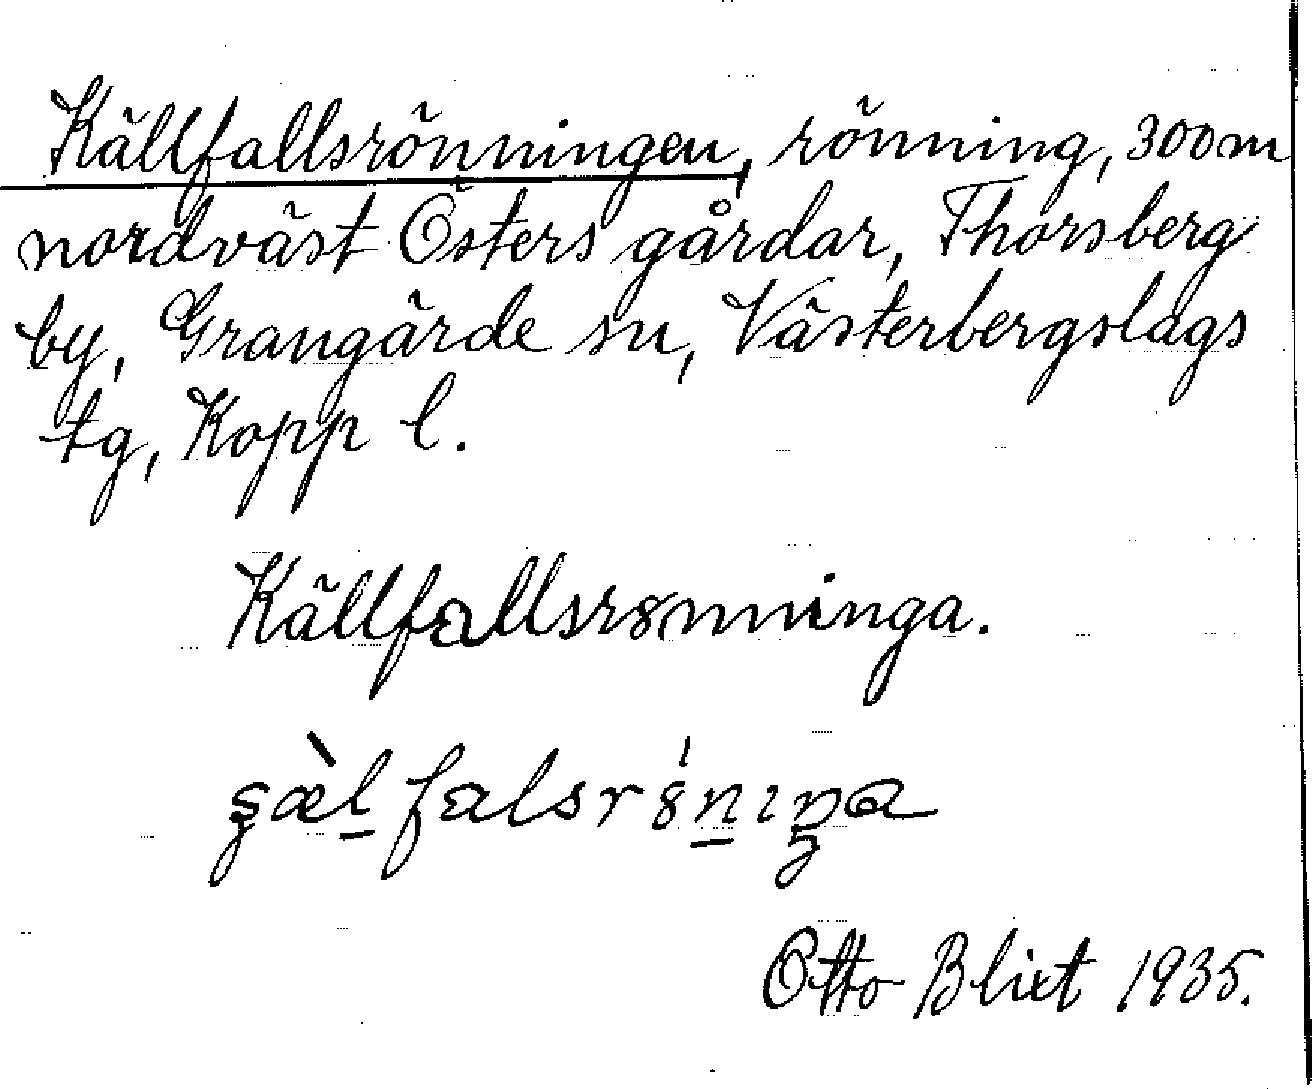 Källfallsrönningen, rönning, 300 m
nordväst Östers gårdar, Thorsberg
by, Grangärde sn, Västerbergslags
tg, Kopp l.
Källfallsr8nninga.
Otto Blixt 1935.